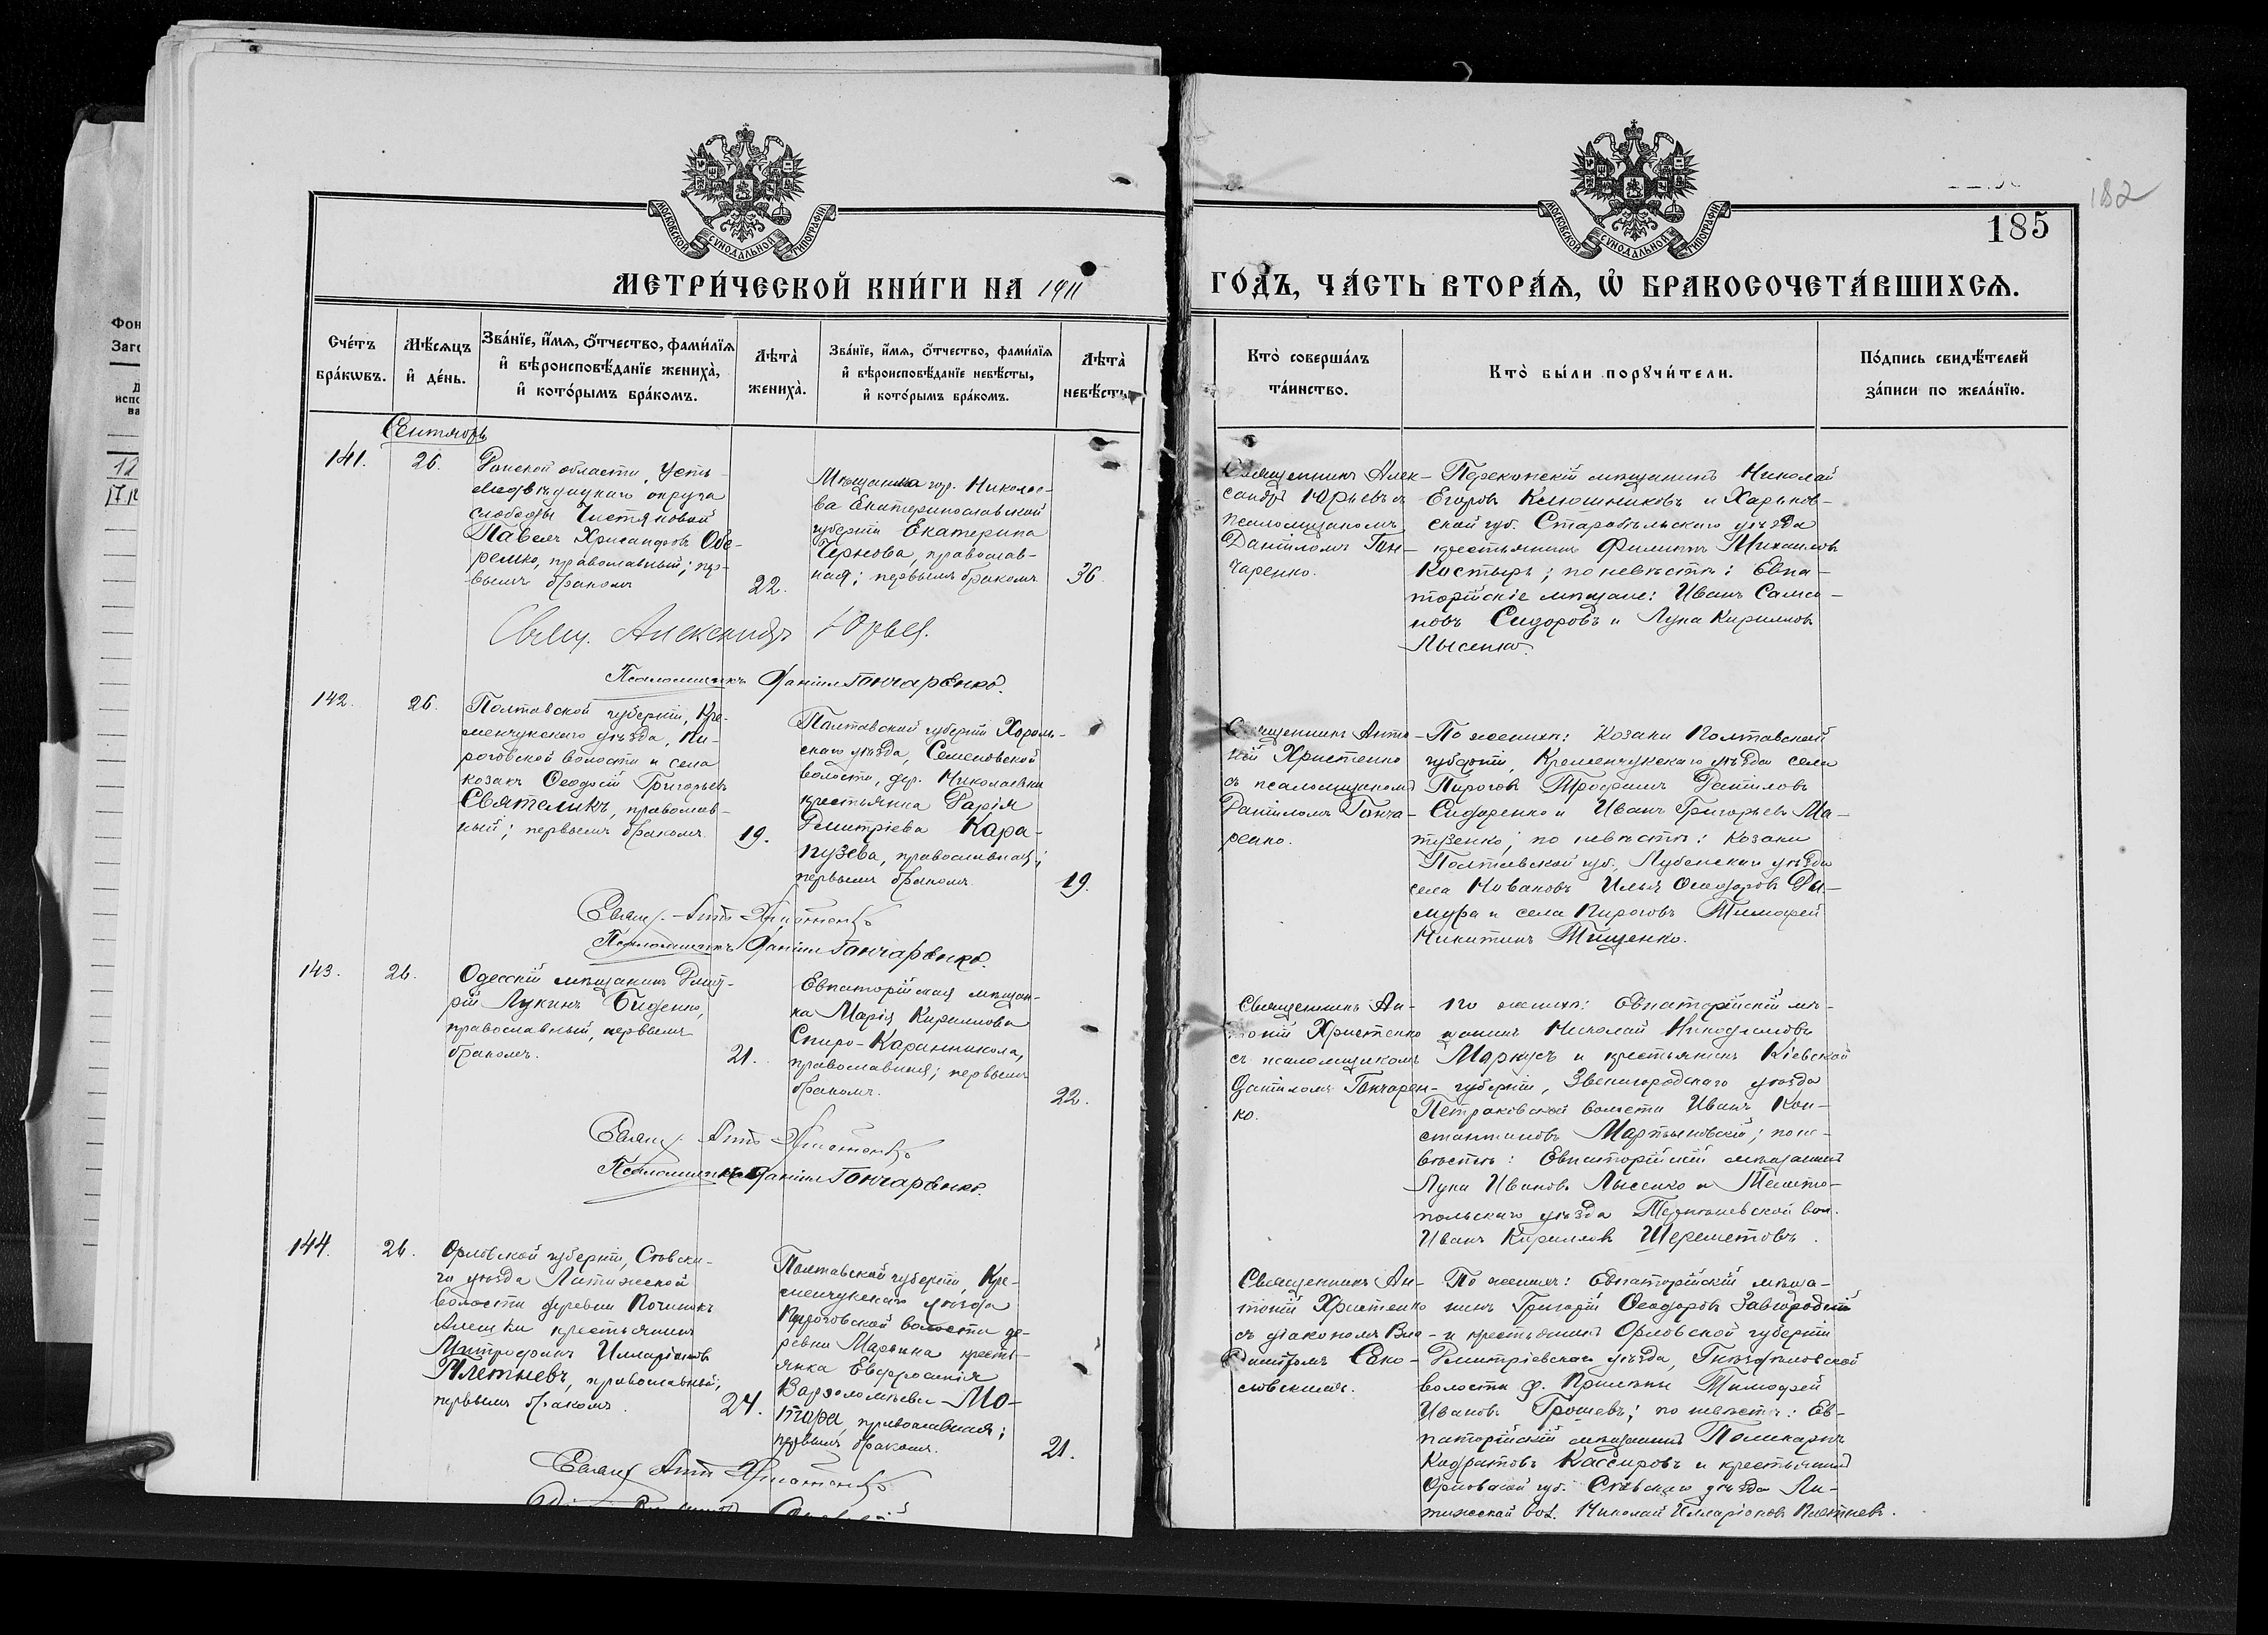 182
185
МОСКОВСКОЙ СѴНОДАЛЬНОЙ ТИПОГРАФІИ
МОСКОВСКОЙ СѴНОДАЛЬНОЙ ТИПОГРАФІИ
МЕТРИ́ЧЕСКОЙ КНИ́ГИ НА 1911 ГО́ДЪ, ЧА́СТЬ ВТОРА́Ѧ, Ѡ҆ БРАКОСОЧЕТА́ВШИХСѦ.
Фон
Заго
12
17.12
Сче́тъ
бра́кѡвъ.
Мѣ́сѧцъ
и҆ де́нь.
Зва́нїе, и҆́мѧ, ѻ҆́тчество, фами́лїѧ
и҆ вѣроисповѣ́данїе жениха̀,
и҆ кото́рымъ бра́комъ.
Лѣ́та̀
жениха̀.
Зва́нїе, и҆́мѧ, ѻ҆́тчество, фами́лїѧ
и҆ вѣроисповѣ́данїе невѣ́сты,
и҆ кото́рымъ бра́комъ.
Лѣ́та̀
невѣ́сты
Кто̀ соверша́лъ
та́инство.
Кто̀ бы́ли порꙋчи́тели.
По́дпись свидѣ́телей
за́писи по жела́нїю.
Сентябрь
141.
26.
Донской области, Усть-
Медвѣдицкаго округа
слободы Чистяковой
Павелъ Хрисанфовъ Обе-
ремко, православный; пер-
вымъ бракомъ
22.
Мѣщанка гор. Николае-
ва Екатеринославской
губерніи Екатерина
Чернова, православ-
ная; первымъ бракомъ
36.
Священникъ Алек-
сандръ Юрьевъ съ
псаломщикомъ
Даніиломъ Гон-
чаренко.
Перекопскій мѣщанинъ Николай
Егоровъ Клюшниковъ и Харьков-
ской губ. Старобѣльскаго уѣзда
крестьянинъ Филиппъ Михаиловъ
Костырь; по невѣстѣ: Евпа-
торійскіе мѣщане: Иванъ Самсо-
новъ Сидоровъ и Лука Кирилловъ
Лысенко.
Свящ. Александръ Юрьев.
Псаломщикъ Даніилъ Гончаренко.
142.
26.
Полтавской губерніи, Кре-
менчукскаго уѣзда, Пи-
роговской волости и села
козакъ Ѳеодосій Григорьевъ
Святеликъ, православ-
ный; первымъ бракомъ
19.
Полтавской губерніи Хороль-
скаго уѣзда, Семеновской
волости, дер. Николаевки
крестьянка Дарія
Димитріева Кара-
пузева, православная;
первымъ бракомъ.
19.
Священникъ Анто-
ній Христенко
съ псаломщикомъ
Даніиломъ Гонча-
ренко.
По женихѣ: козаки Полтавской
губерніи, Кременчукскаго уѣзда села
Пироговъ Трофимъ Даніиловъ
Сидоренко и Иванъ Григорьевъ Ма-
тузенко; по невѣстѣ: козаки
Полтавской губ. Лубенскаго уѣзда
села Илья Ѳеодоровъ
и села Пироговъ Тимофей
Никитинъ Тищенко.
Свящ. Ант. Христенко
Псаломщикъ Даніилъ Гончаренко.
143.
26.
Одесскій мѣщанинъ Димит-
рій Лукинъ Биденко,
православный, первымъ
бракомъ.
21.
Евпаторійская мѣщан-
ка Марія Кириллова
Спиро-Каранникола,
православная; первымъ
бракомъ.
22.
Священникъ Ан-
тоній Христенко
съ псаломщикомъ
Даніиломъ Гончарен-
ко.
По женихѣ: Евпаторійскій мѣ-
щанинъ Николай Никодимовъ
Маркусъ и крестьянинъ Кіевской
губерніи, Звенигородскаго уѣзда
Петраковской волости Иванъ Кон-
стантиновъ Мартыновскій; по не-
вѣстѣ: Евпаторійскій мѣщанинъ
Лука Ивановъ Лысенко и Мелито-
польскаго уѣзда вол.
Иванъ Кирилловъ Шереметовъ.
Свящ. Ант. Христенко
Псаломщикъ Даніилъ Гончаренко.
144.
26.
Орловской губерніи, Сѣвска-
го уѣзда Литижской
волости деревни Починокъ
Алешки крестьянинъ
Митрофанъ Илларіоновъ
Плетневъ, православный,
первымъ бракомъ.
24.
Полтавской губерніи, Кре-
менчукскаго уѣзда
Пироговской волости де-
ревни Марьина кресть-
янка Евфросинія
Варѳоломѣева Мо-
тора, православная;
первымъ бракомъ.
21.
Священникъ Ан-
тоній Христенко
съ діакономъ Вла-
диміромъ Соко-
ловскимъ.
По женихѣ: Евпаторійскій мѣща-
нинъ Григорій Ѳеодоровъ Завгородній
и крестьянинъ Орловской губерніи
Димитріевскаго уѣзда,
волости д. Тимофей
Ивановъ Грошевъ; по невѣстѣ: Ев-
паторійскій мѣщанинъ Поликарпъ
Кодратовъ Кассировъ и крестьянинъ
Орловской губ. Сѣвскаго уѣзда Ли-
тижской вол. Николай Илларіоновъ Плетневъ.
Свящ. Ант. Христенко